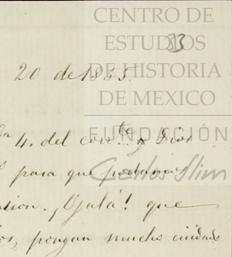 CENTRO DE
ESTUDIOS
83
DE HISTORIA
20 de 18
DE MEXICO
4. del corr.te y Dios
FUNDACIÓN
para que podamos
Carlos Slim
¡Ojalá! que
pongan mucho cuidado